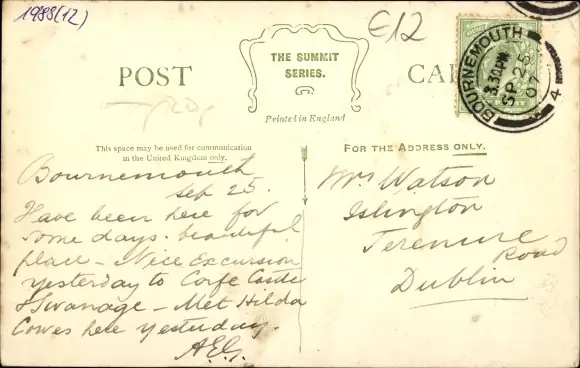 1988(12)
£12
THE SUMMIT
SERIES.
POST CAR
Printed in England
BOURNEMOUTH
3.30PM
SP 25
07
4
This space may be used for communication
in the United Kingdom only.
FOR THE ADDRESS ONLY.
Bournemouth
Sep 25.
Have been here for
some days. beautiful
place - Nice Excursion
yesterday to Corfe Castle
& Swanage - Met Hilda
Cowes here yesterday.
A.E.G.
Mrs Watson
Islington
Terenure
Road
Dublin